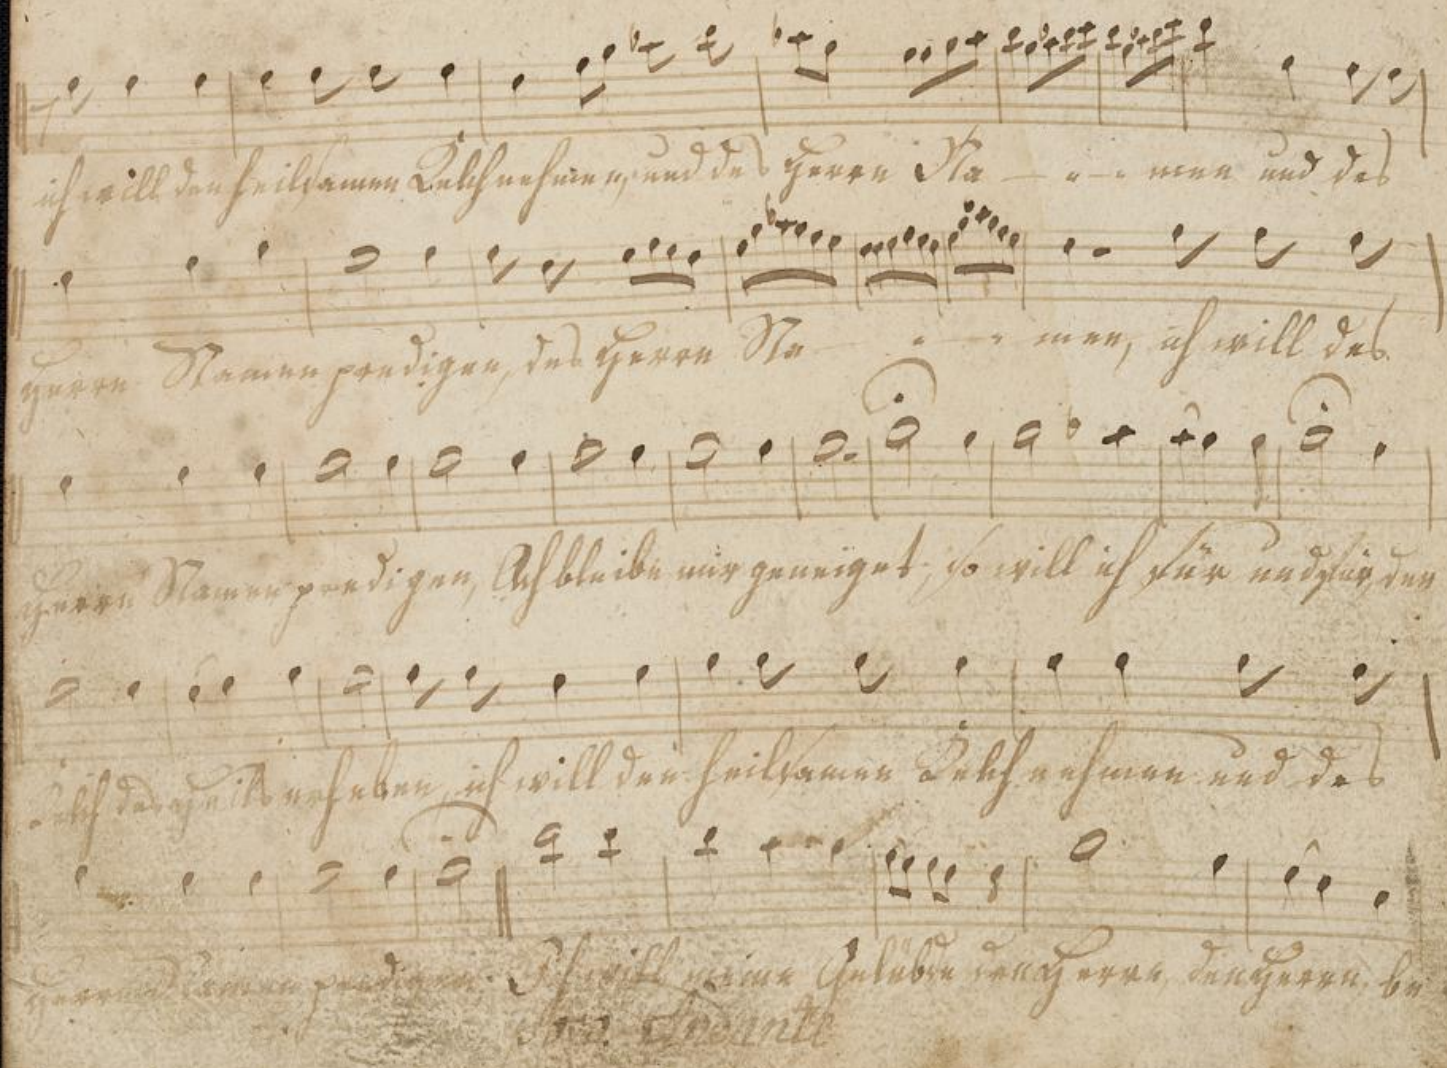 ich will den heilsamen Kelch nehmen, und des Herrn Na - - - men und des
Herrn Namen predigen, des Herrn Na - - men, ich will des
Herrn Namen predigen, Ach bleibe mir geneiget, so will ich für und für, den
Kelch des Heils erheben, ich will den heilsamen Kelch nehmen und des
Herrn Namen predigen. Ich will meine Gelübde dem Herrn, dem Herrn be
Andante